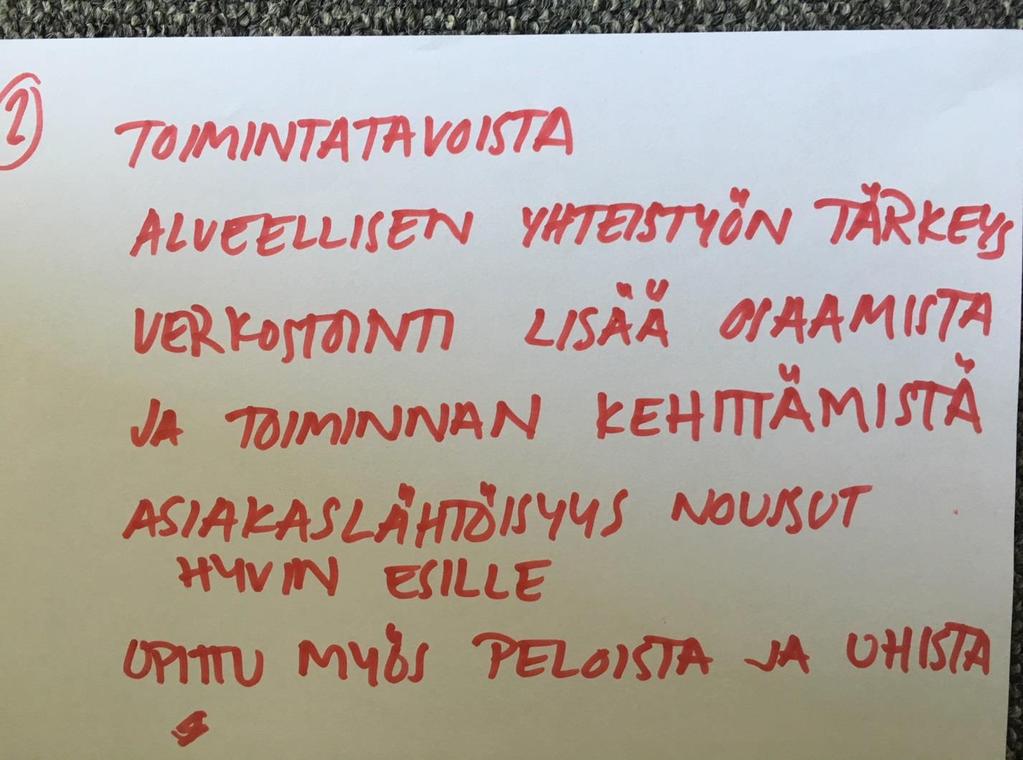 2
TOIMINTATAVOISTA
ALUEELLISEN YHTEISTYÖN TÄRKEYS
VERKOSTOINTI LISÄÄ OSAAMISTA
JA TOIMINNAN KEHITTÄMISTÄ
ASIAKASLÄHTÖISYYS NOUSSUT
HYVIN ESILLE
OPITTU MYÖS PELOISTA JA UHISTA